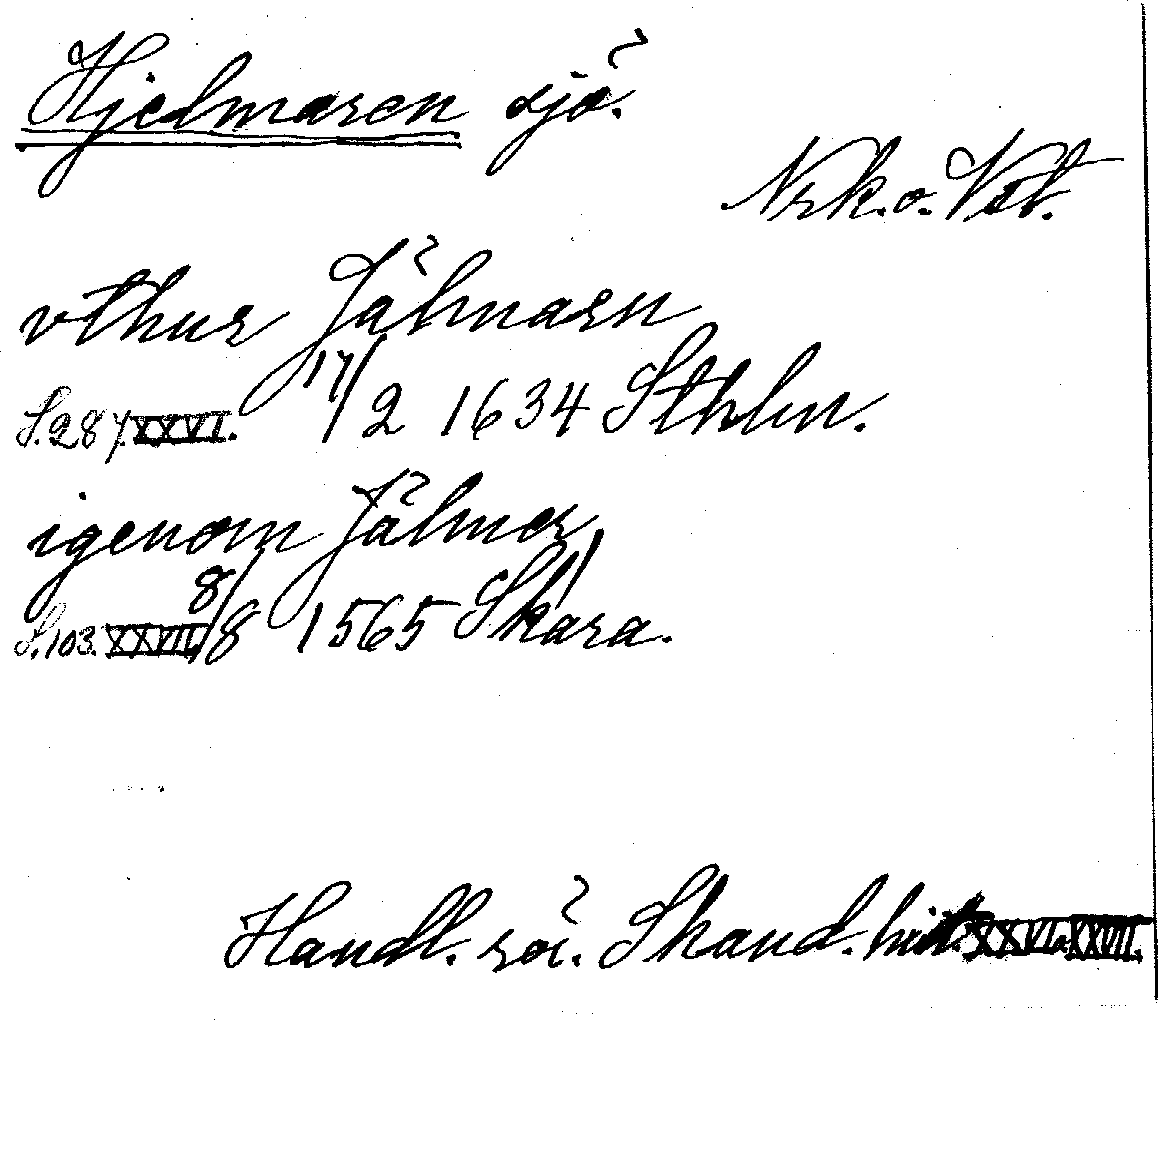 Hjelmaren sjö.
Nrk. o. Vstt.
vthur Jälmarn
S. 287. XXVI. 17/2 1634 Sthlm.
igenom Jälmer
S. 103. XXVII. 8/8 1565 Skara.
Handl. rör. Skand. hist. XXVI o. XXVII.